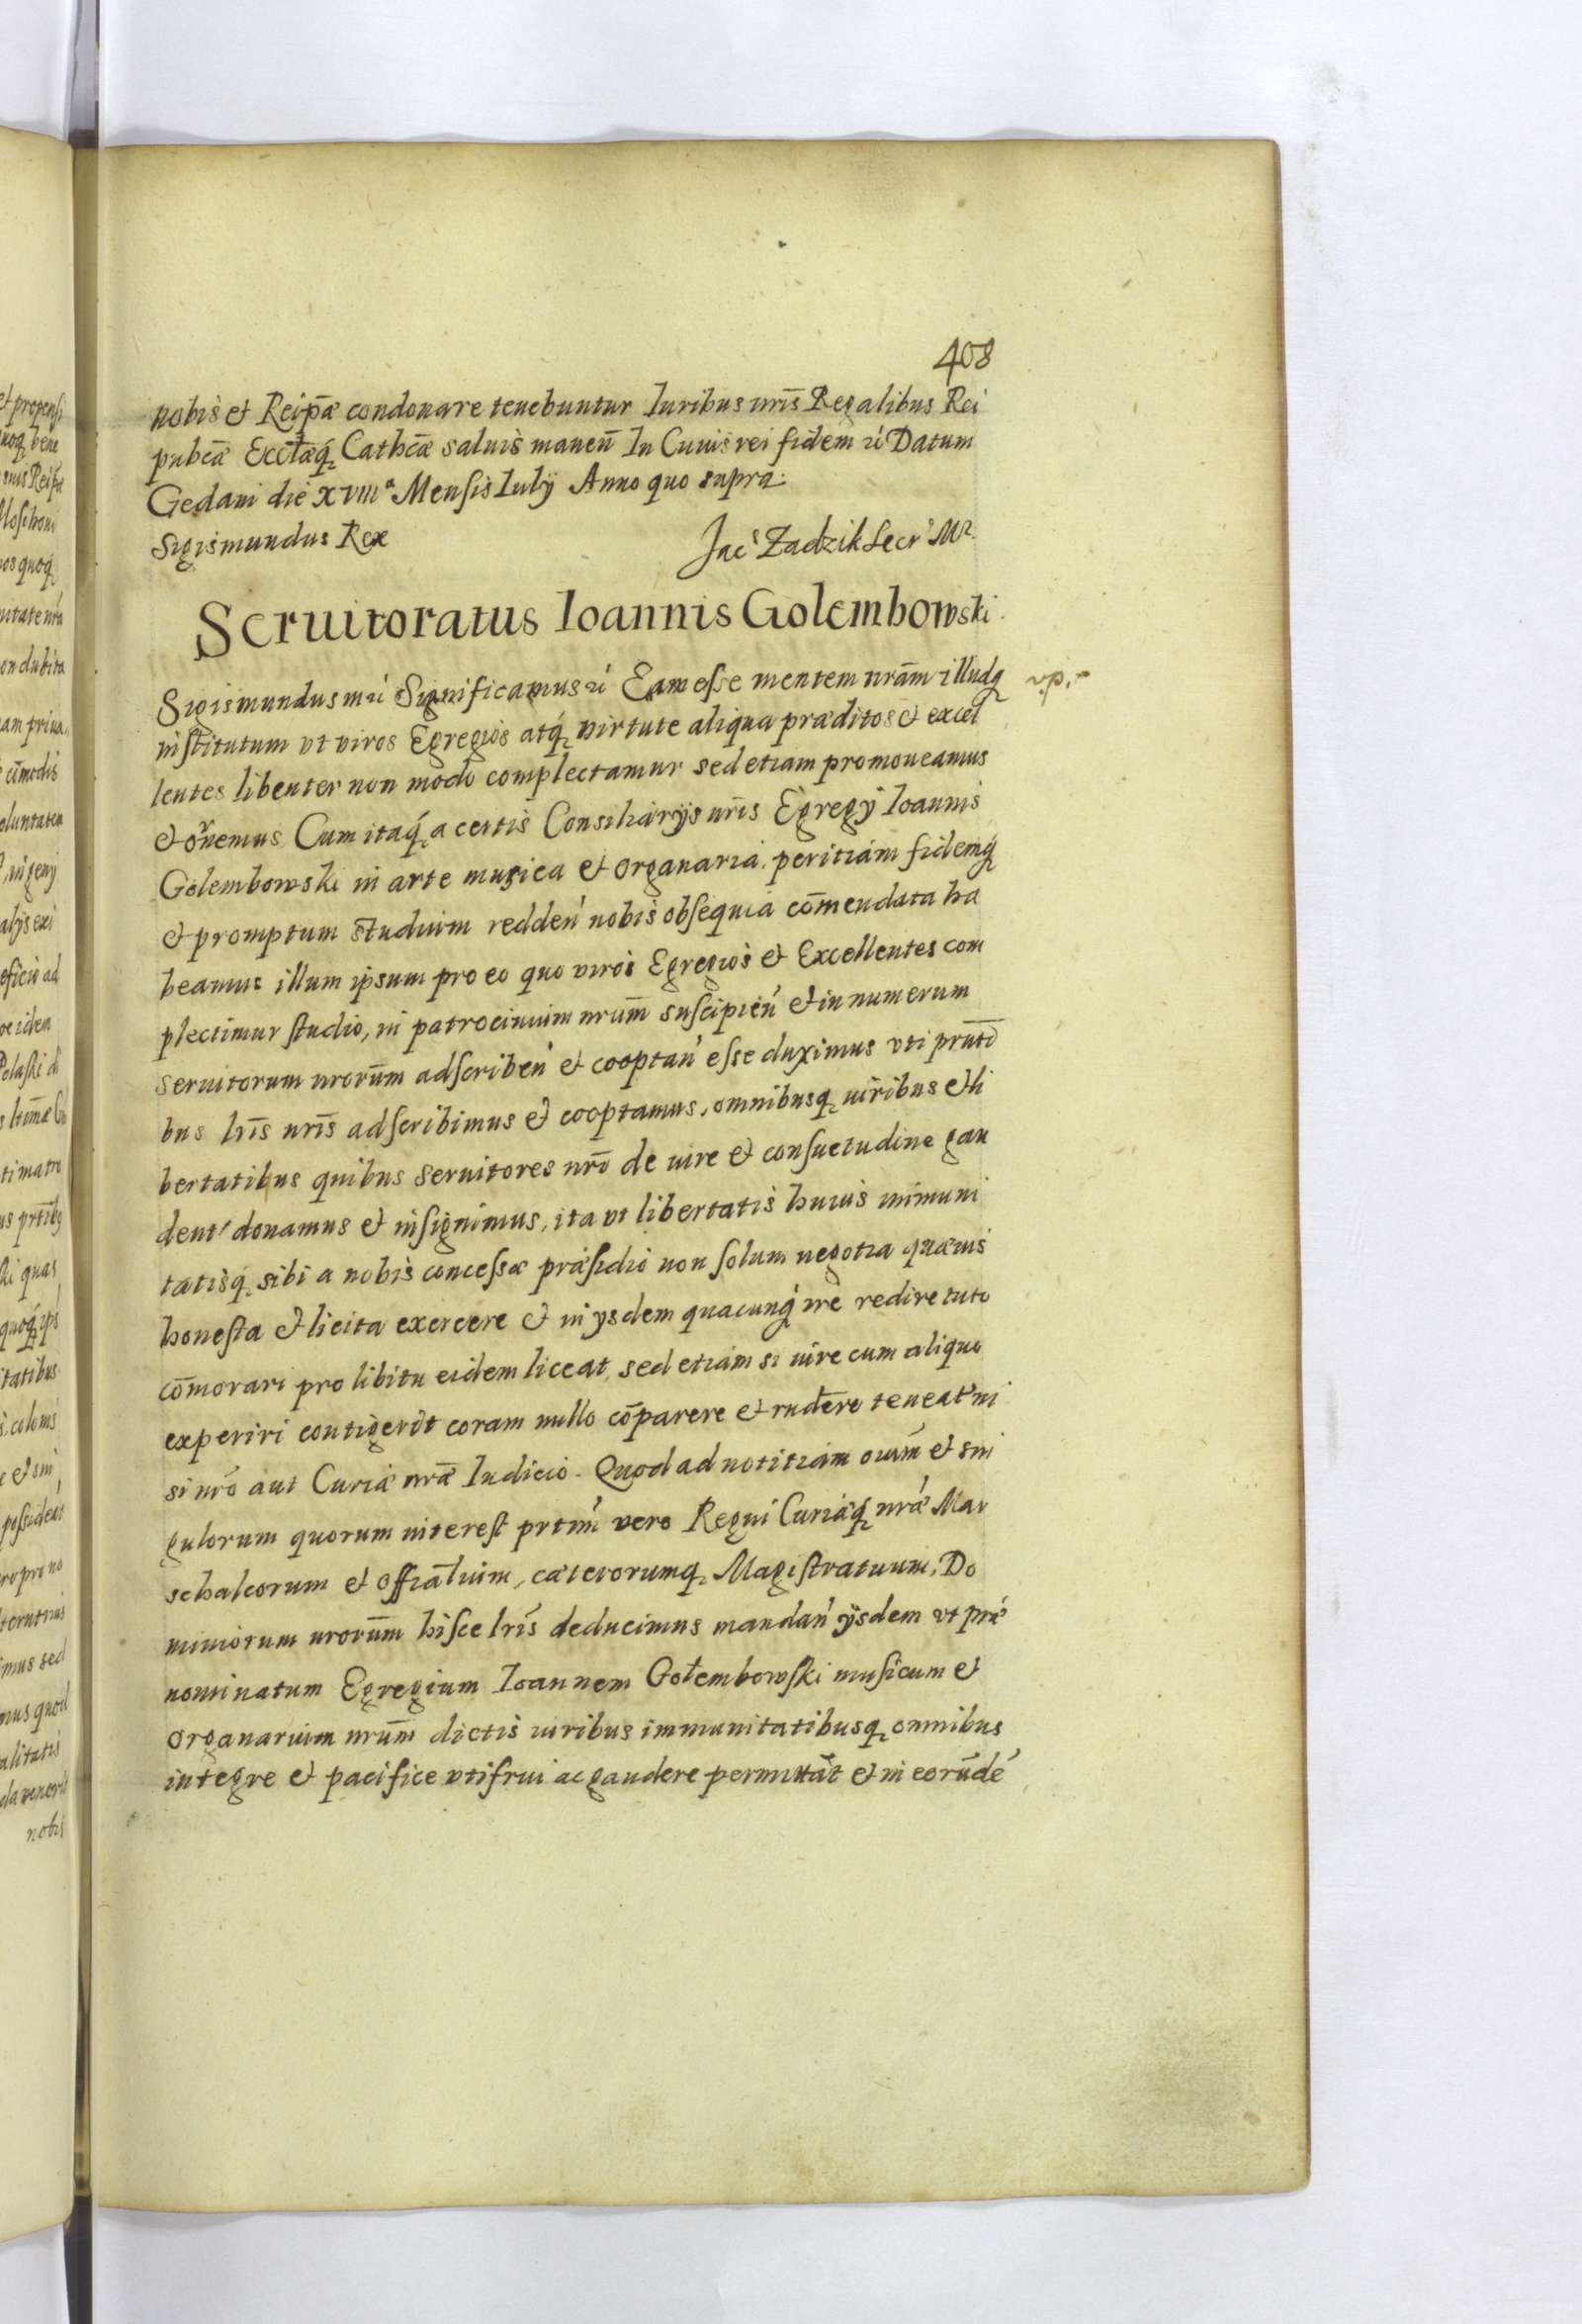 408
nobis et Reipāe condonare tenebuntur Iuribus nrīs Regalibus Rei
pubcāe Ecclāeq́ Cathcāe saluis manen̄ In Cuius rei fidem ić Datum
Gedani die XVIIIª Mensis Iulÿ Anno quo supra.
Sigismundus Rex
Jacˢ Zadzik Secrˢ Mᵗⁱˢ
Seruitoratus Ioannis Golembowski.
Sigismundus m ić Significamus ić Eam esse mentem nrām illudq
institutum vt viros Egregios atq́ virtute aliqua praeditos et excel
lentes libenter non modo complectamur sed etiam promoueamus
et ornemus Cum itaq́ a certis Consiliarÿs nrīs Egregÿ Ioannis
Golembowski in arte musica et organaria peritiam fidemq́
et promptum studium redden' nobis obsequia cōmendata ha
beamus illum ipsum pro eo quo viros Egregios et Excellentes com
plectimur studio, in patrocinium nrūm suscipien' et in numerum
seruitorum nrorūm adscriben' et cooptan' esse duximus vti prnti̅
bus lrīs nrīs adscribimus et cooptamus, omnibusq iuribus et li
bertatibus quibus seruitores nrī de iure et consuetudine gau
dent donamus et insignimus, ita vt libertatis huius immuni
tatisq́ sibi a nobis concessae praesidio non solum negotia quaeuis
honesta et licita exercere et in ÿsdem quacunq́ ire redire tuto
cōmorari pro libitu eidem liceat, sed etiam si iure cum aliquo
experiri contigerit coram nullo cōparere et rndēre teneat' ni
si nrō aut Curiae nrāe Iudicio. Quod ad notitiam oium̄ et sin
gulorum quorum interest prtim' vero Regni Curiaeq́ nrāe Mar
schalcorum et offiāliuim, caeterorumq Magistratuum, Do
miniorum nrorūm hisce lrīs deducimus mandan' ÿsdem vt prae
nominatum Egregium Ioannem Gołembowski musicum et
organarium nrūm dictis iuribus immunitatibusq omnibus
integre et pacifice vti frui ac gaudere permittāt et in eorūdē